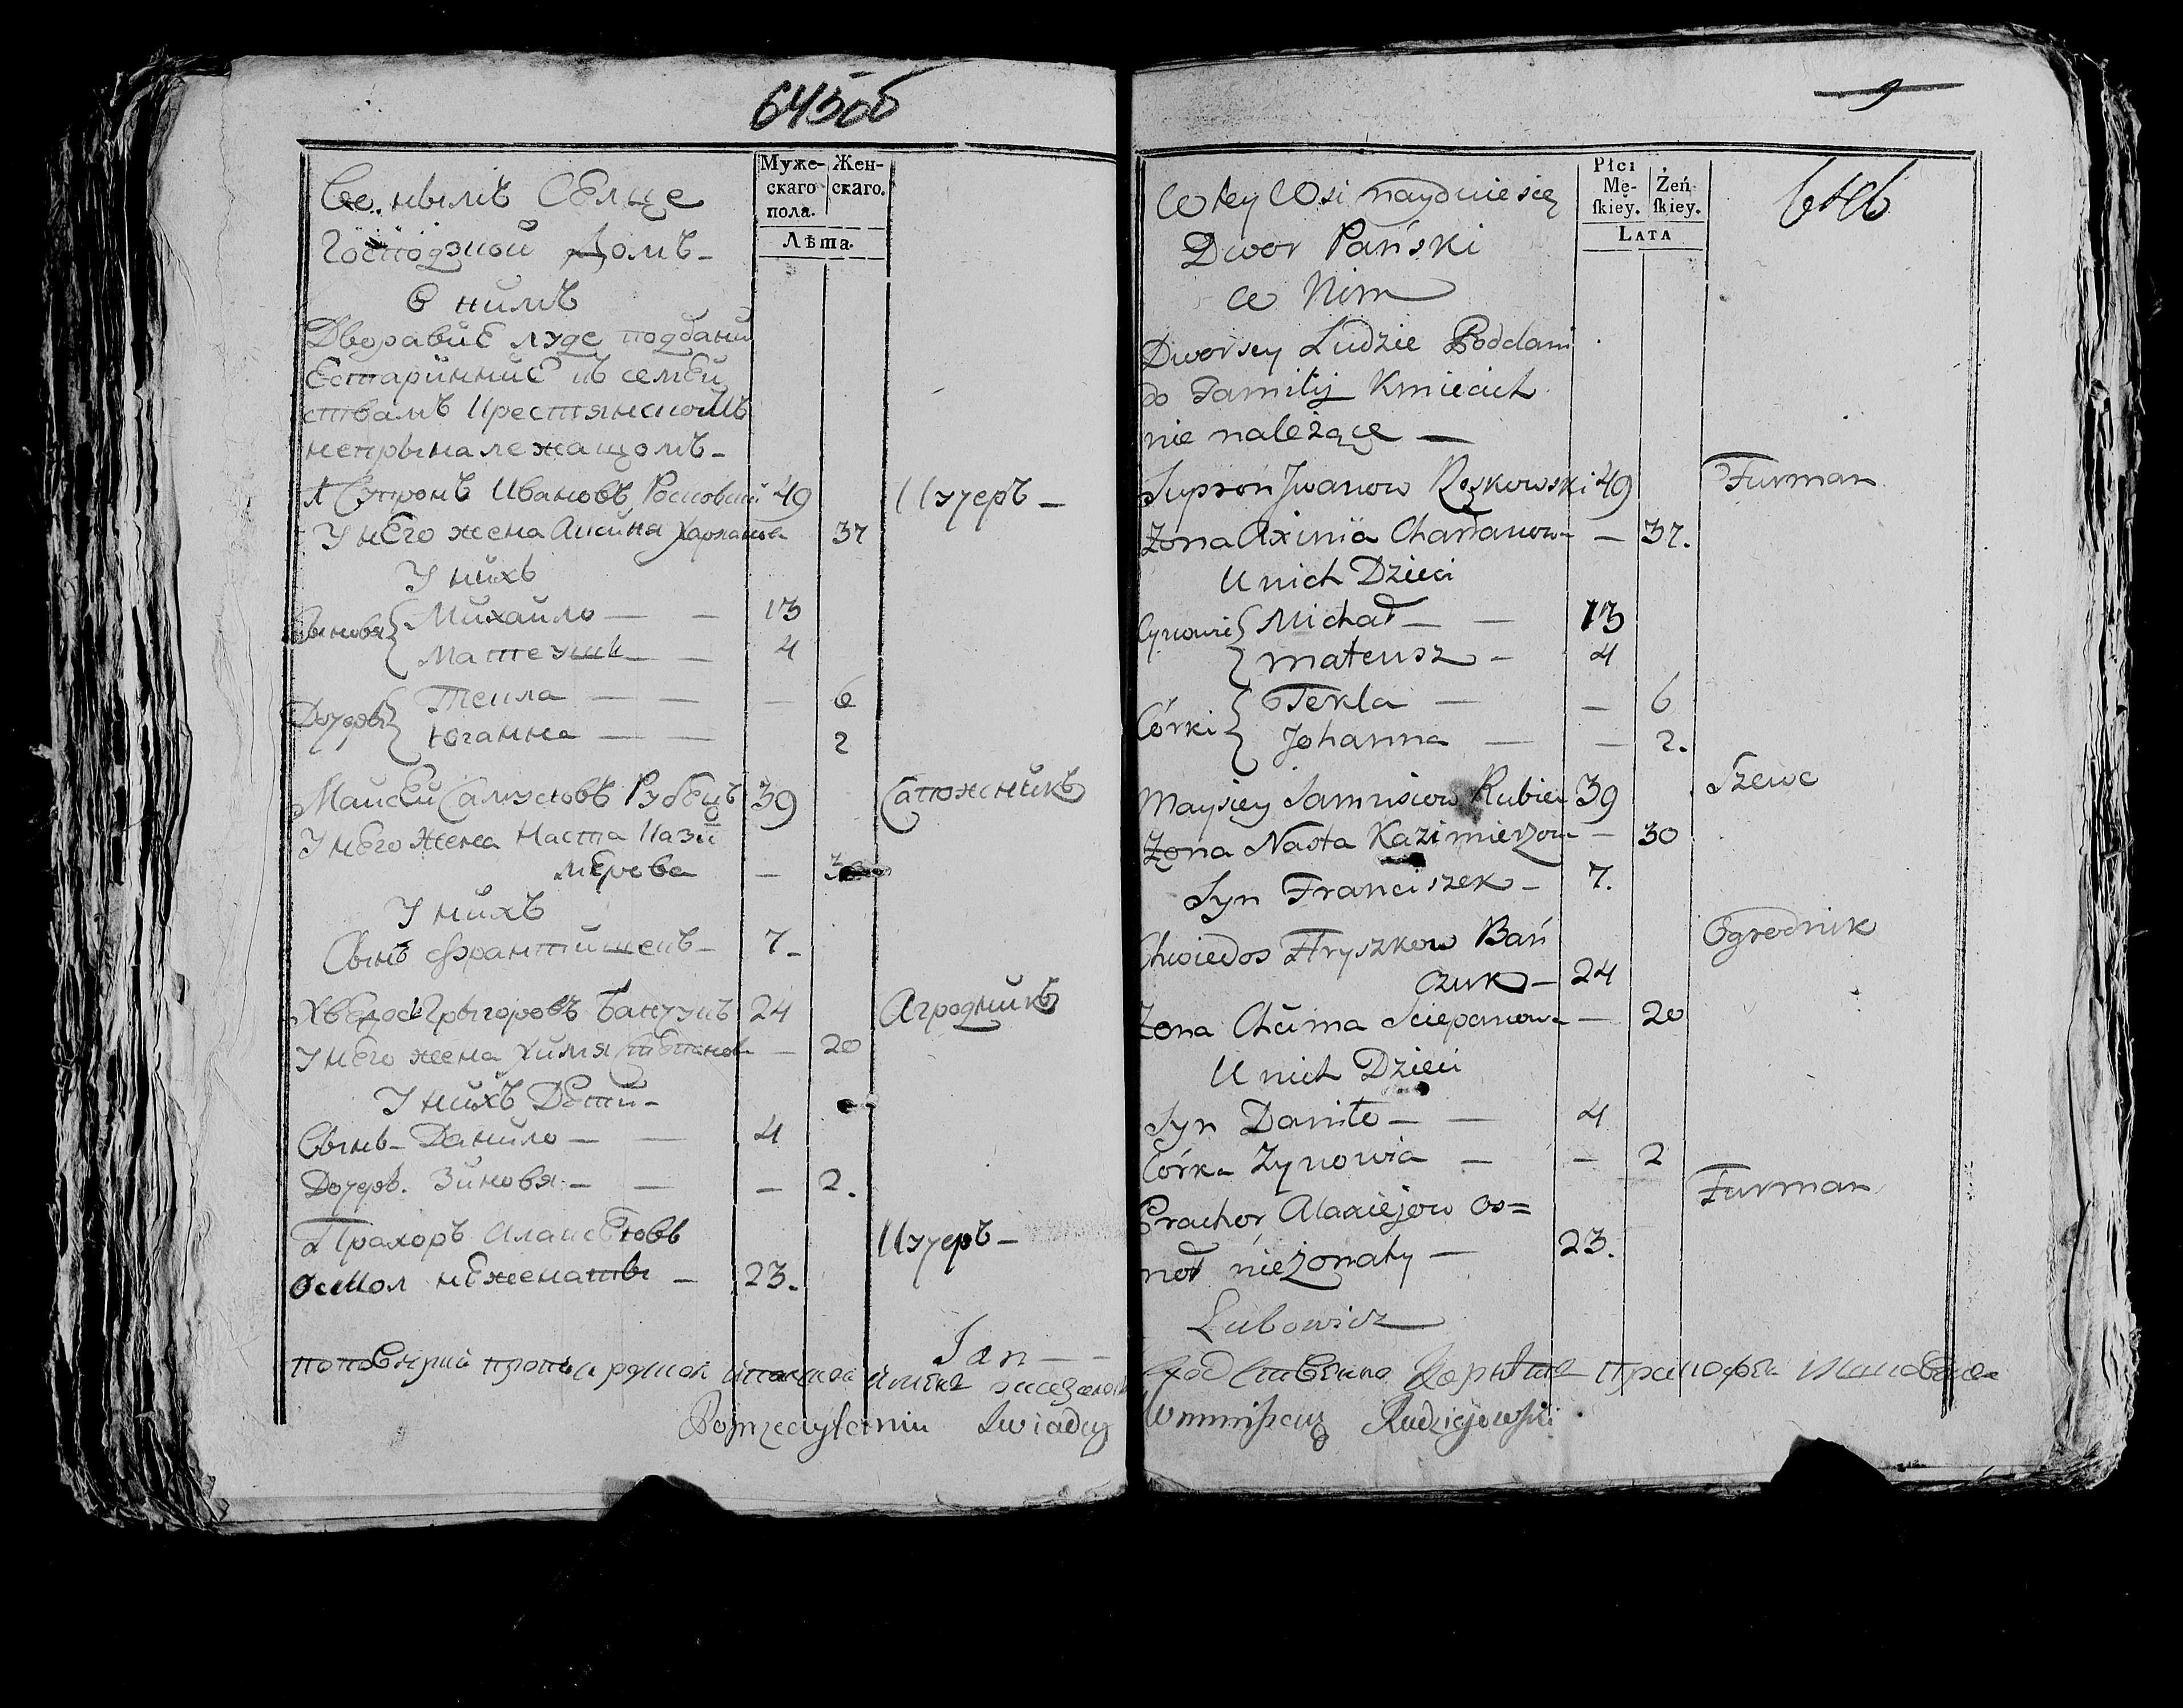 645об
Муже-
скаго
пола.
Жен-
скаго.
Лѣта.
Господзной Домъ -
В нимъ
Дворавиѣ луде поддани
непрыналежащомъ -
Супронъ Ивановъ Росковский 49 Кучеръ -
У него жена Аксиня 37
У нихъ
Сыновя Михайло — — 13
Матеушъ — 4
Дочерѣ Текла — — — 6
Юганна — — 2
Майсѣй Самусіовъ Рубѣцъ 39 Сапожникъ
У него жена Наста Кази
мѣрова — 30
У нихъ
Сынъ Франтишекъ - 7 -
Хвѣдосъ Грыгоровъ Банчукъ 24 Агродникъ
У него жена Химя — 20
У нихъ Дѣти -
Сынъ - Данило — — 4
Дочерь. Зиновя. — — — 2.
Прахоръ Алаксѣювъ Кучеръ -
Осмол нѣженаты — 23.
Jan —
Poprzeczytaniu Swiadczę
9
646
Płci
Mę-
skiey.
Żeń-
skiey.
LATA
W tey Wsi nayduie się
Dwor Pański
W Nim
Dworscy Ludzie Poddani
do Familij Kmiecich
nie należące —
Supron Jwanow Roskowski 49 Furman
Żona Axinia Charłanowa — 37.
U nich Dzieci
Synowie Michał — — 13
Mateusz - 4
Córki Tekla — — 6
Johanna — — 2.
Maysiey Samusiow Rubiec 39 Szewc
Żona Nasta Kazimierzowa — 30
Syn Franciszek - 7.
Chwiedos Hryszkow Bań
czuk - 24 Ogrodnik
Żona Chima Sciepanowa — 20
U nich Dzieci
Syn Daniło — — 4
Córka Zynowia — — 2
Prachor Alaxiejow Os=
moł nieżonaty — 23. Furman
Lubowicz